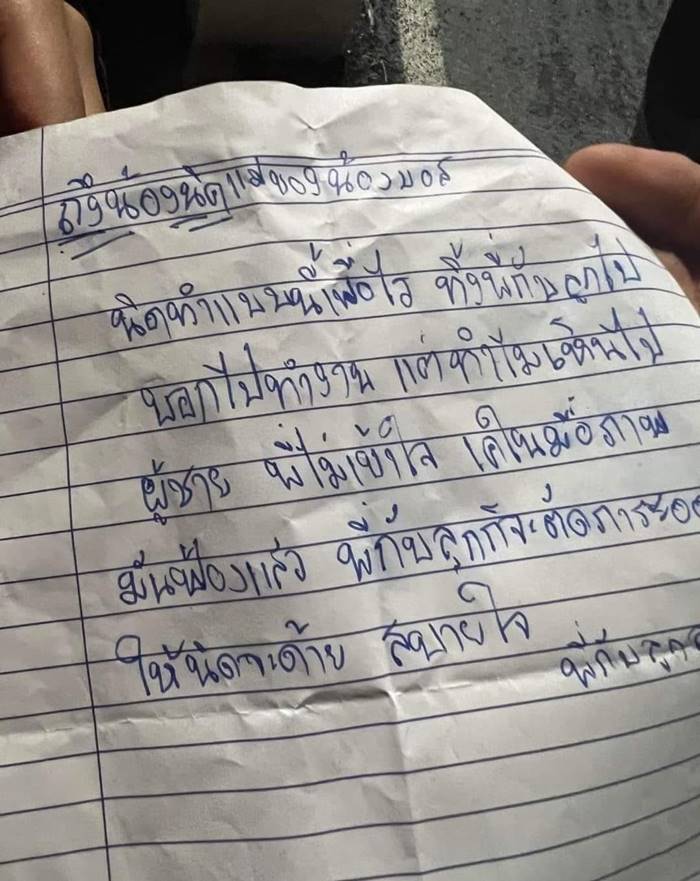 ถึงน้องนิดแม่ของน้องบอส
นิดทำแบบนี้เพื่อไร ทิ้งพี่กับลูกไป
บอกไปทำงาน แต่ทำไมเห็นไป
ผู้ชาย พี่ไม่เข้าใจ เคในมือภาพ
มันฟ้องแล้ว พี่กับลูกก็จะตัดภาระออ
ให้นิดจะด้าย สบายใจ
พี่กับลูก